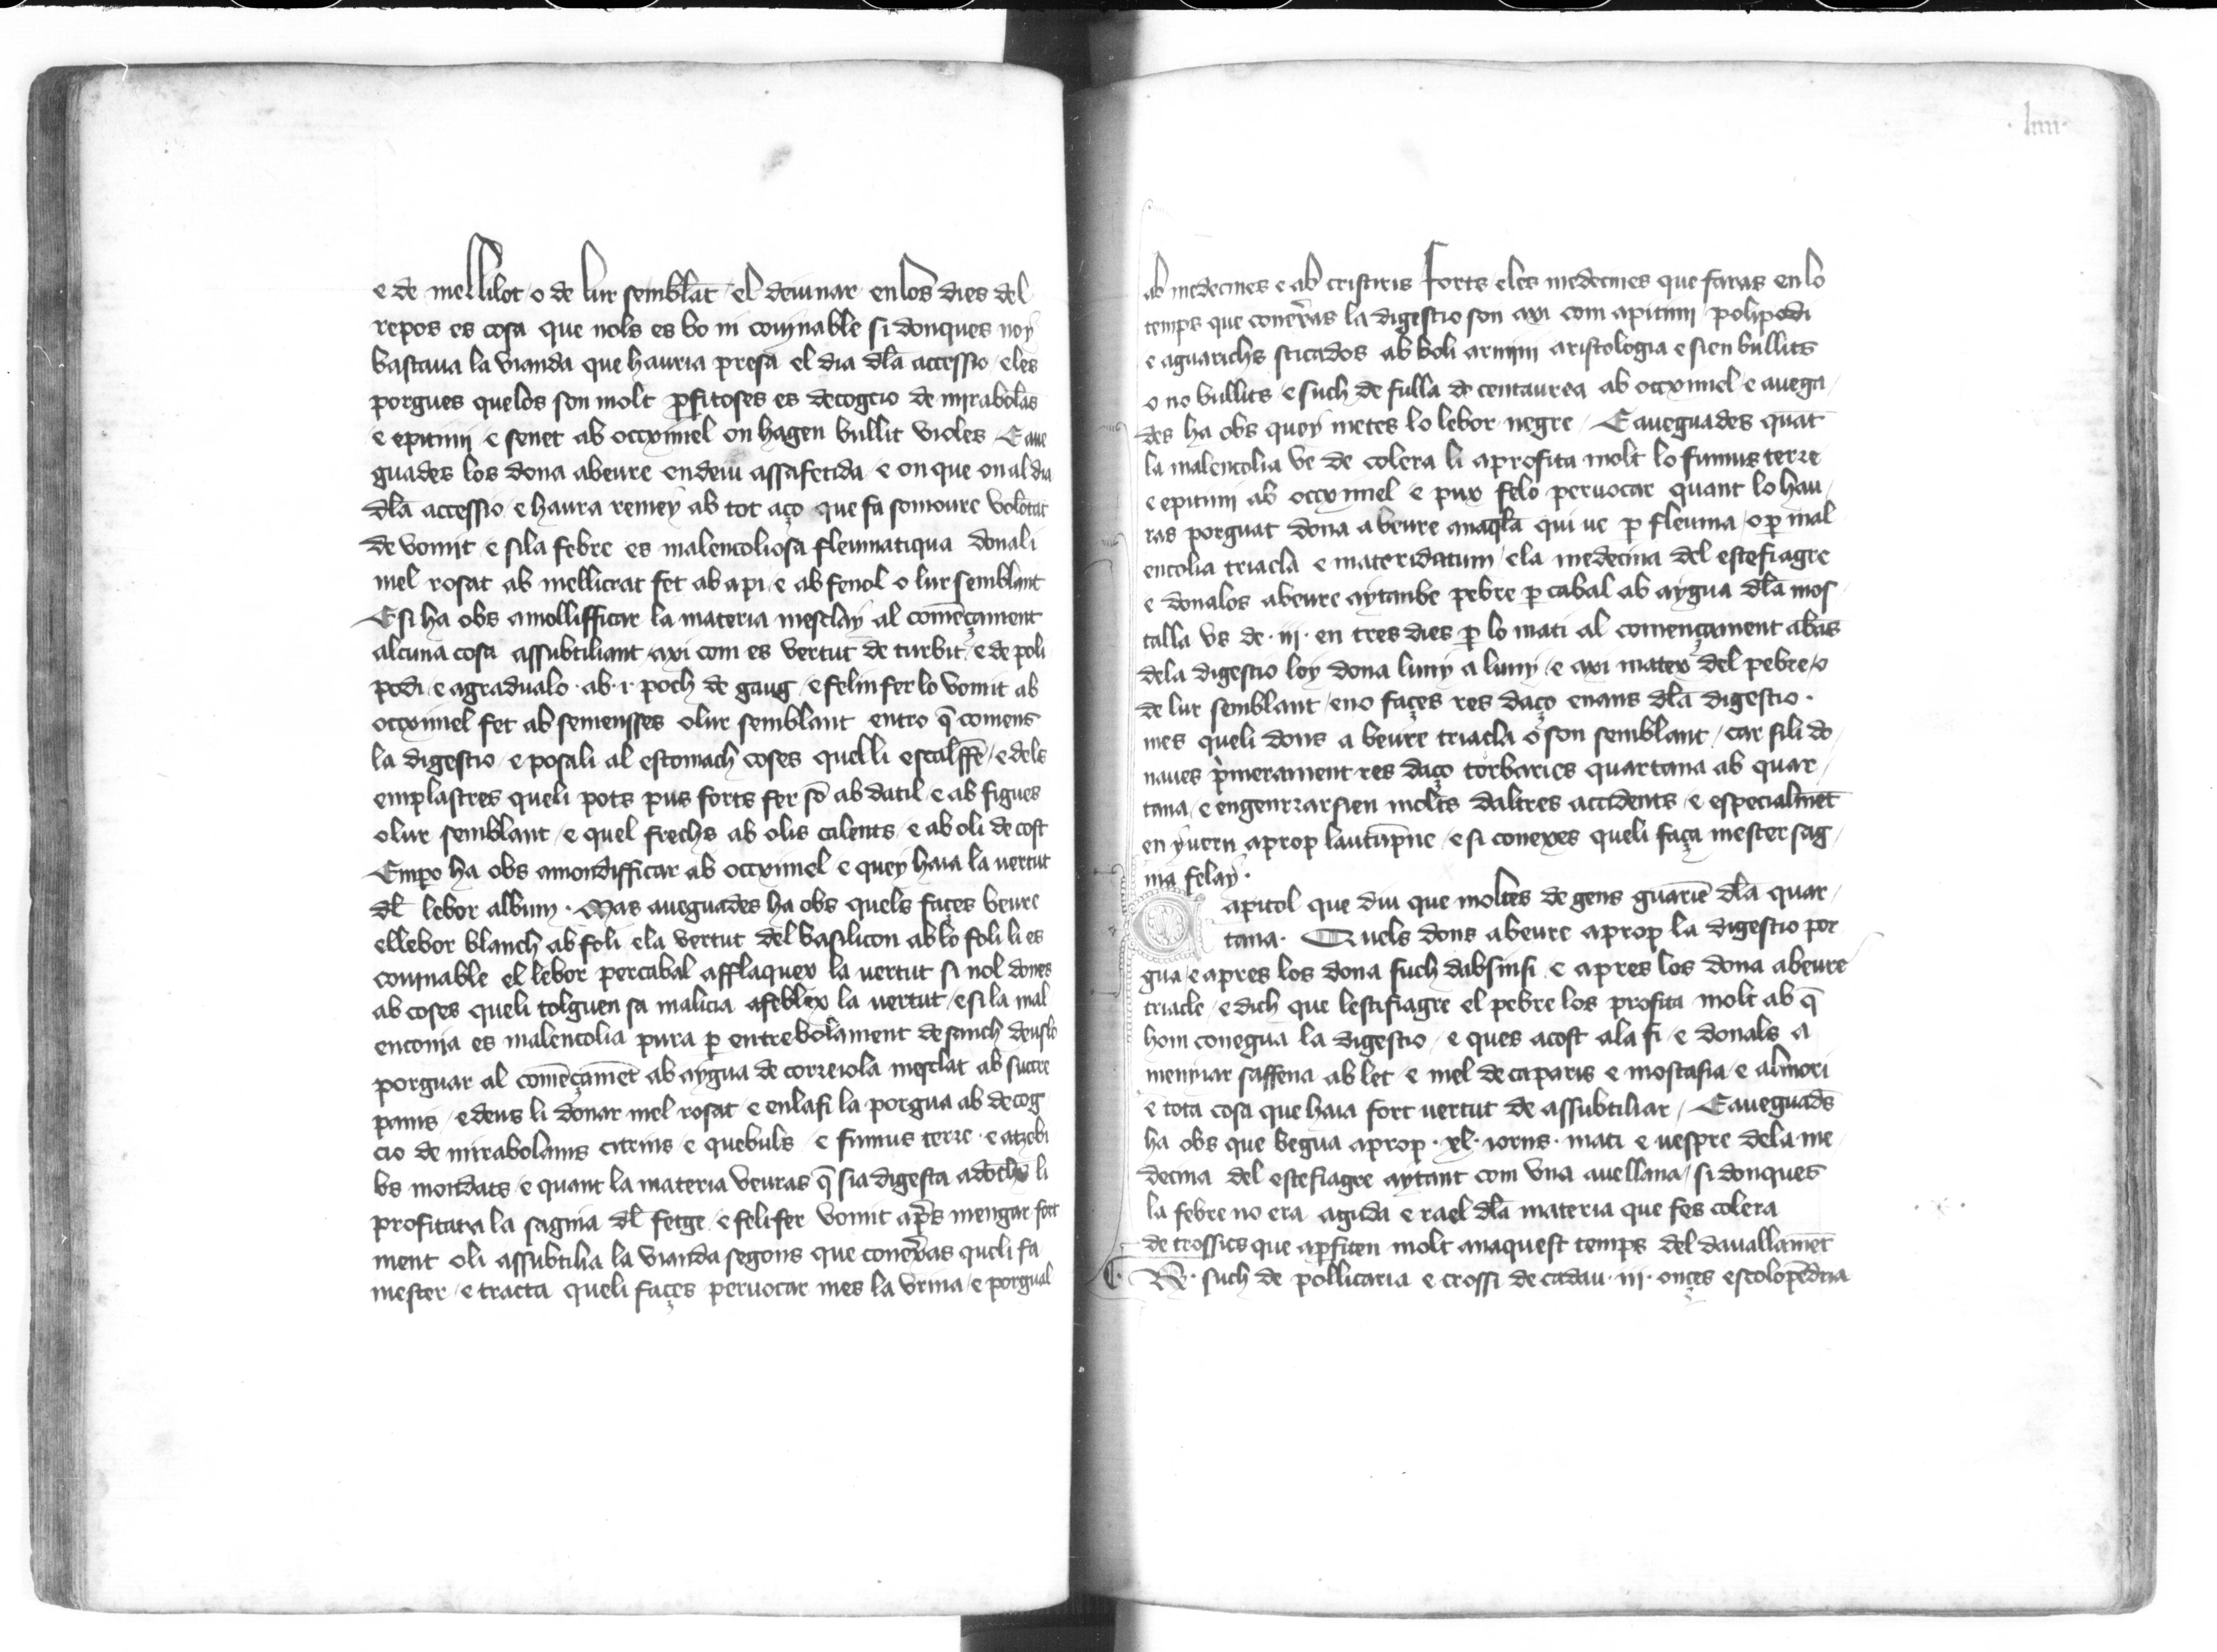 e de mellilot / o de lur semblāt / el deiunar en los dies del
repos es cosa que nols es bo ni couinable si donques noy
bastaua la vianda que hauria presa el dia dla accessio / eles
porgues quelos son molt profitoses es decogcio de mirabolās
e epitimi / e senet ab occximel on hagen bullit violes / E aue
guades los dona abeure endeiu assafetida / e on que on al dia
dla accessio / e haura remey ab tot aço que fa somoure volōtat
de vomit / e sila febre es malencoliosa fleumatiqua donali
mel rosat ab mellicrat fet ab api / e ab fenol o lur semblant
E si ha obs amollifficar la materia mesclay al comēçament
alcuna cosa assubtiliant / axi com es vertut de turbit / e de poli
podi / e agradualo · ab · i · poch de gaug / e felin fer lo vomit ab
occximel fet ab semensses olur semblant entro q̄ comens
la digestio / e posali al estomach coses quelli escalffē / e dels
emplastres queli pots pus forts fer sō ab datil / e ab figues
olur semblant / e quel frechs ab olis calents / e ab oli de cost
Empo ha obs amondifficar ab occximel e quey haia la vertut
dl lebor album · Mas aueguades ha obs quels façes beure
ellebor blanch ab foli ela vertut del basilicon ab lo foli li es
couinable el lebor percabal afflaquex la vertut si nol dones
ab coses queli tolguen sa malicia afeblex la vertut / e si la mal
enconia es malencolia pura p entrebolament de sanch deuslo
porguar al comēçamēt ab aygua de correiola mesclat ab succre
panis / e deus li donar mel rosat / e enlafi la porgua ab decog
cio de mirabolanis citrins / e quebuls / e fumus terre · e atzebi
bs mondats / e quant la materia veuras q̄ sia digesta adōchs li
profitara la sagnia dl fetge / e feli fer vomit aprs mengar fort
ment oli assubtilia la vianda segons que conexras queli fa
mester / e tracta queli façes peruocar mes la vrina / e porgual
· liiii ·
ab medecines e ab cristiris forts / eles medecines que faras en lo
temps que conexras la digestio son axi com apitimi / polipodi
e aguarichs sticados ab boli armini aristologia e sien bullits
o no bullits / e such de fulla de centaurea ab occximel / e auega /
des ha obs quey metes lo lebor negre / E aueguades quāt
la malencolia ve de colera li aprofita molt lo fumus terre
e epitimi ab occximel e pux felo peruocar quant lo hau /
ras porguat dona abeure anaqla qui ve p fleuma / o p mal
encolia triacla e materidatum / ela medecina del estefiagre
e donalos abeure aytanbe pebre p cabal ab aygua dla mos /
talla vs de · iii · en tres dies p lo mati al començament abās
dela digestio loy dona luny a luny / e axi matex del pebre / o
de lur semblant / eno façes res daço enans dla digestio ·
mes queli dons a beure triacla o son semblant / car sili do
naues primerament res daço torbaries quartana ab quar /
tana / e engenrrarsien molts daltres accidents / e especialmēt
en yuern aprop lautūpne / e si conexes queli faça mester sag /
nia felay ·
Capitol que diu que moltes de gens guariē dla quar /
tana · Quels dons abeure aprop la digestio por
gua / e apres los dona such dabsinsi / e apres los dona abeure
triacle / e dich que lestifiagre el pebre los profita molt ab q̄
hom conegua la digestio / e ques acost ala fi / e donals a
meniar saffena ab let / e mel de caparis e mostasia / e almori
e tota cosa que haia fort vertut de assubtiliar / E aueguads
ha obs que begua aprop · xl · iorns · mati e vespre dela me
decina del estefiagre aytant com vna auellana / si donques
la febre no era aguda e rael dla materia que fes colera
de trossics que aprfiten molt anaquest temps del dauallamēt
· R · such de pollicaria e crossi de cadau · iii · onçes escolopēdria